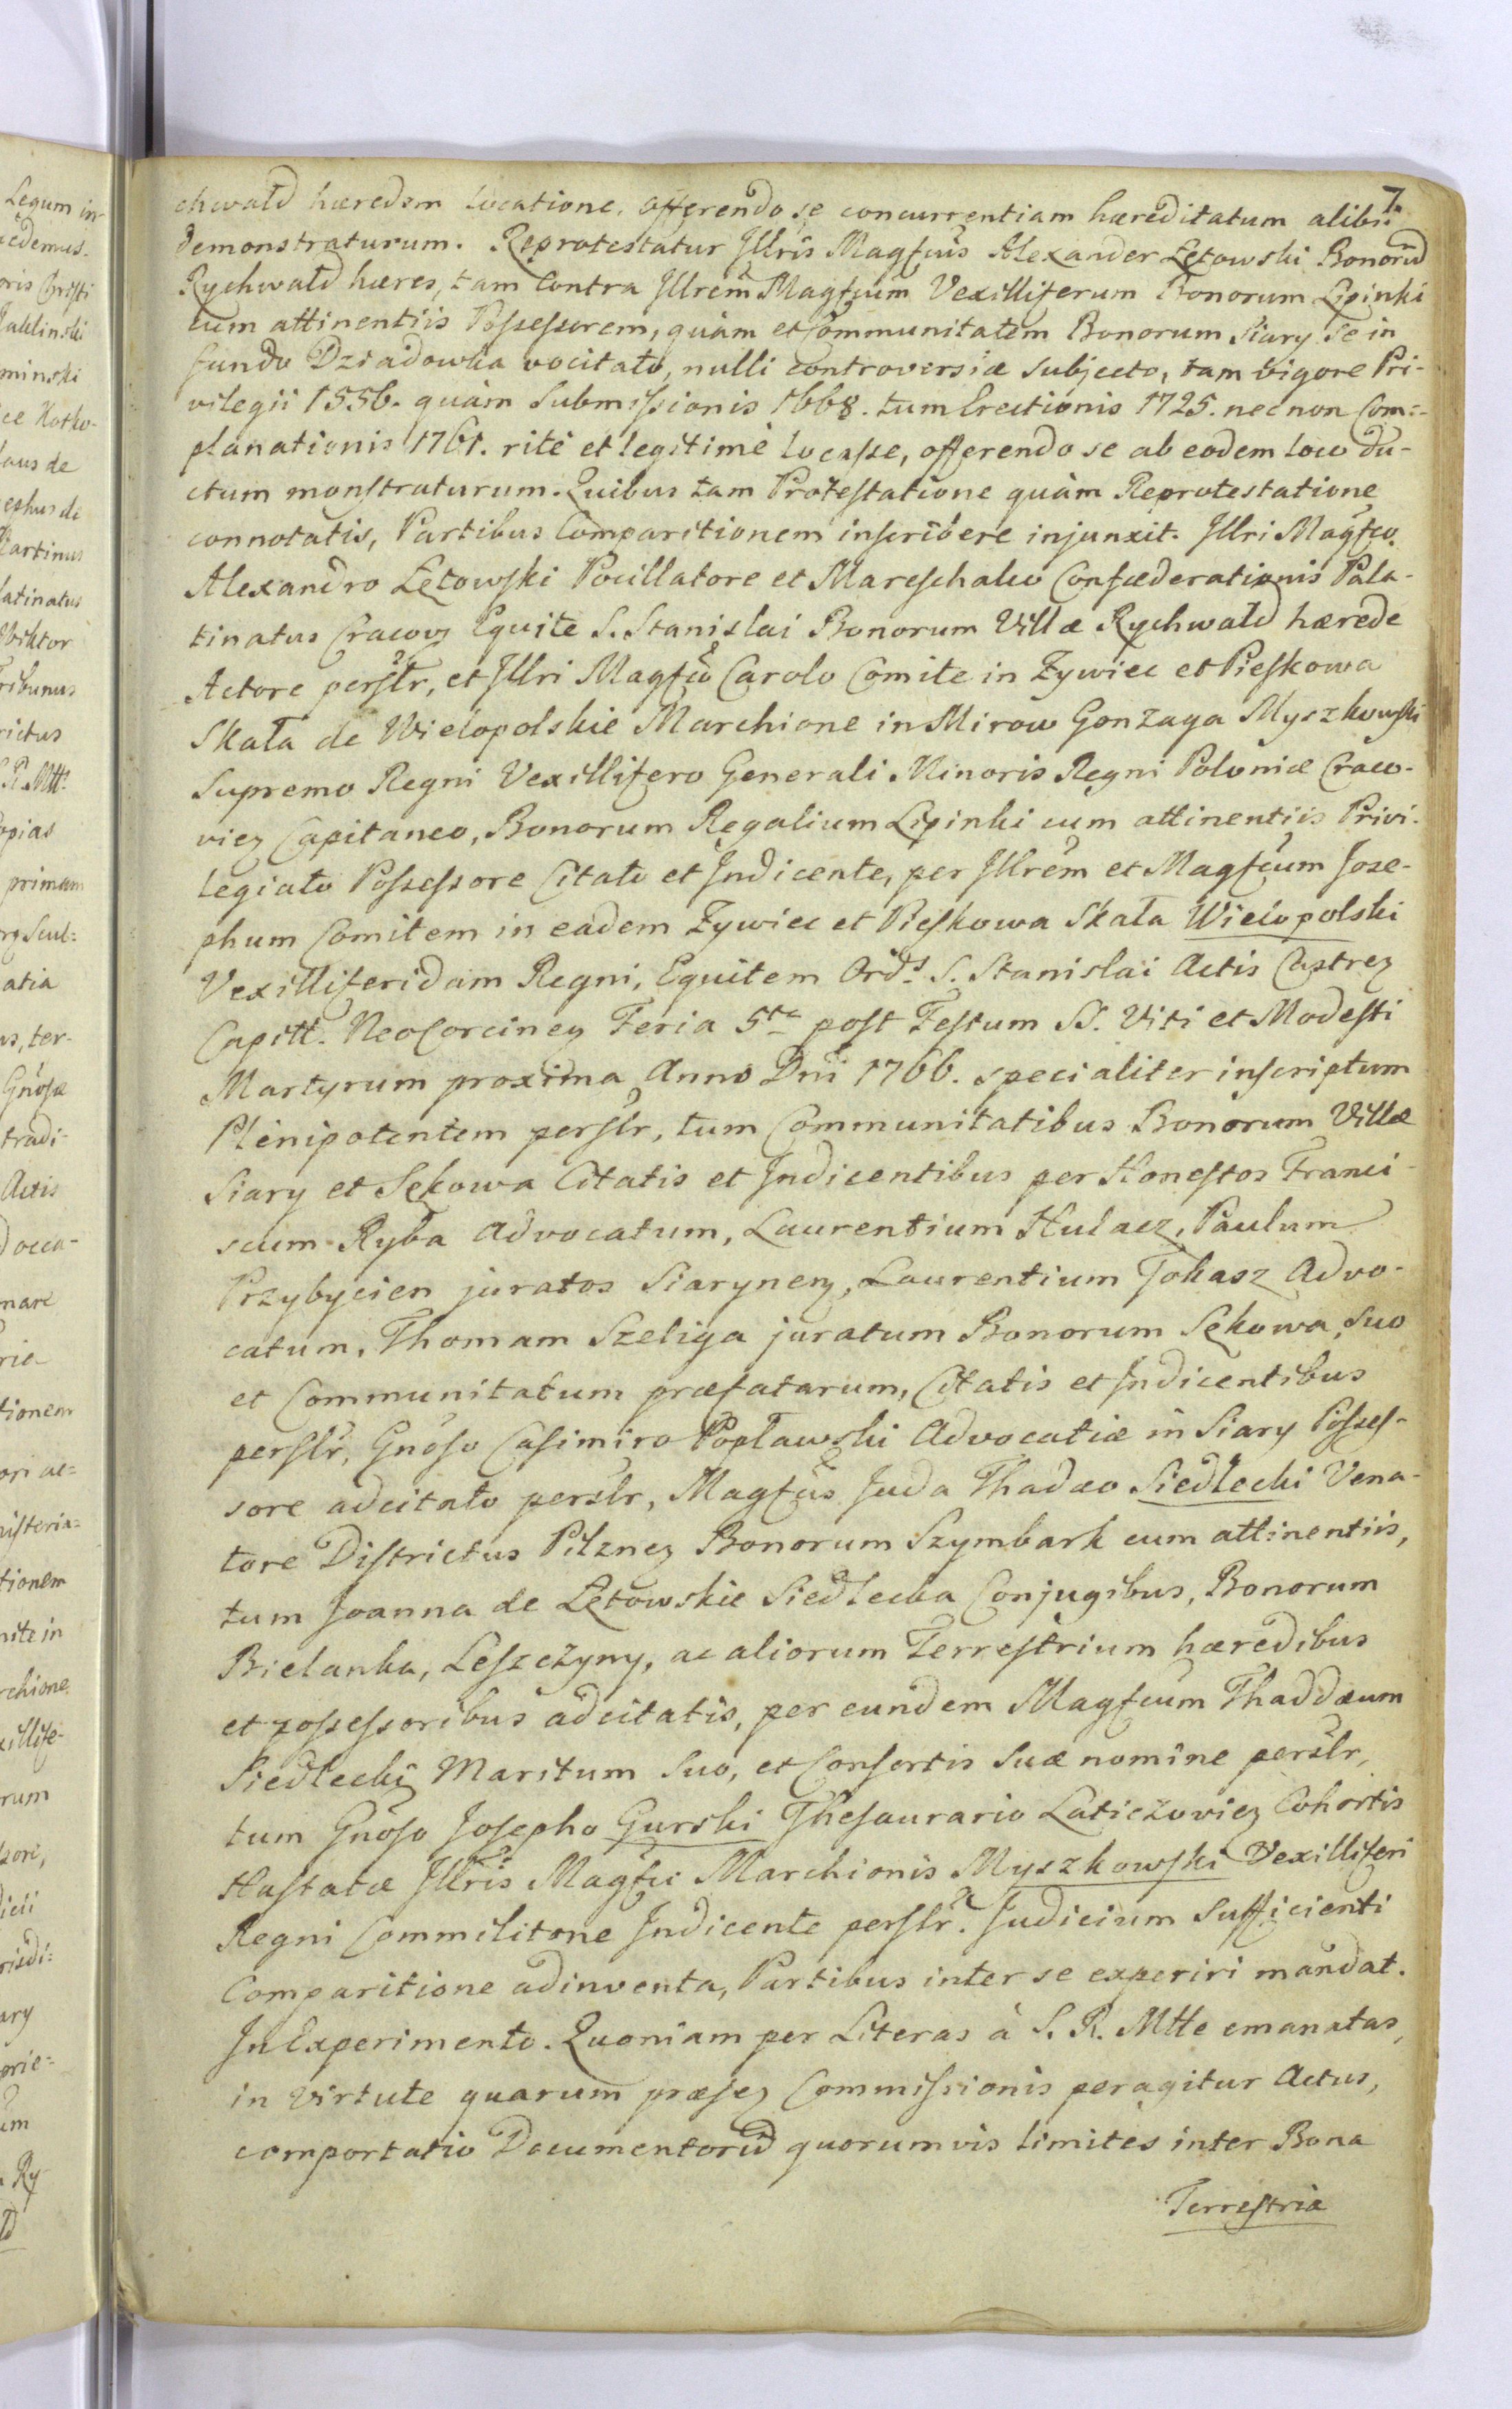 7.
chwałd hæredem locatione, offerendo se concurrentiam hæreditatum alibi
demonstraturum. Reprotestatur Jllris Magfcus Alexander Łętowski Bonorū
Rychwałd hæres, tam Contra Jllrem Magfcum Vexilliferum Bonorum Lipinki
cum attinentiis Possessorem, quàm et Communitatem Bonorum Siary se in
fundo Dziadowka vocitato, nulli controversiæ subjecto, tam vigore Pri-
vilegii 1556. quàm Submissionis 1668. tum Erectionis 1725. nec non Com=
planationis 1761. ritè et legitimè locasse, offerendo se ab eodem loco du-
ctum monstraturum. Quibus tam Protestatione quàm Reprotestatione
connotatis, Partibus Comparitionem inscribere injunxit. Jllri Magfco
Alexandro Łętowski Pocillatore et Mareschalco Confæderationis Pala-
tinatus Cracovz Equite S. Stanislai Bonorum Villæ Rychwałd hærede
Actore perslr, et Jllri Magfco Carolo Comite in Zywiec et Pieskowa
Skała de Wielopolskie Marchione in Mirow Gonzaga Myszkowski
Supremo Regni Vexillifero Generali Minoris Regni Poloniæ Craco-
viez Capitaneo, Bonorum Regalium Lipinki cum attinentiis Privi-
legiato Possessore Citato et Indicente, per Jllrem et Magfcum Jose-
phum Comitem in eadem Zywiec et Pieskowa Skała Wielopolski
Vexilliferidam Regni, Equitem Ords S. Stanislai Actis Castrez
Capitt. NeoCorcinez Feria 5ta post Festum SS. Viti et Modesti
Martyrum proxima Anno Dni 1766. specialiter inscriptum
Plenipotentem perslr, tum Communitatibus Bonorum Villæ
Siary et Sękowa Citatis et Indicentibus per Honestos Franci-
scum Ryba Advocatum, Laurentium Hulacz, Paulum
Przybycien juratos Siarynenz, Laurentium Tokasz Advo-
catum, Thomam Szeliga juratum Bonorum Sękowa, suo
et Communitatum præfatarum, Citatis et Indicentibus
perslr, Gnoso Casimiro Popławski Advocatiæ in Siary Posses-
sore adcitato perslr, Magfcus Juda Thadæo Siedlecki Vena-
tore Districtus Pilznez Bonorum Szymbark cum attinentiis,
tum Joanna de Łętowskie Siedlecka Conjugibus, Bonorum
Bielanka, Leszczyny, ac aliorum Terrestrium hæredibus
et possessoribus adcitatis, per eundem Magfcum Thaddæum
Siedlecki Maritum suo, et Consortis suæ nomine perslr,
tum Gnoso Josepho Gurski Thesaurario Laticzoviez Cohortis
Hastatæ Jllris Magfci Marchionis Myszkowski Vexilliferi
Regni Commilitone Indicente perslr. Judicium sufficienti
Comparitione adinventa, Partibus inter se experiri mandat.
In Experimento. Quoniam per Literas à S. R. Mtte emanatas,
in virtute quarum præsez Commissionis peragitur Actus,
comportatio Documentorū quorumvis limites inter Bona
Terrestria